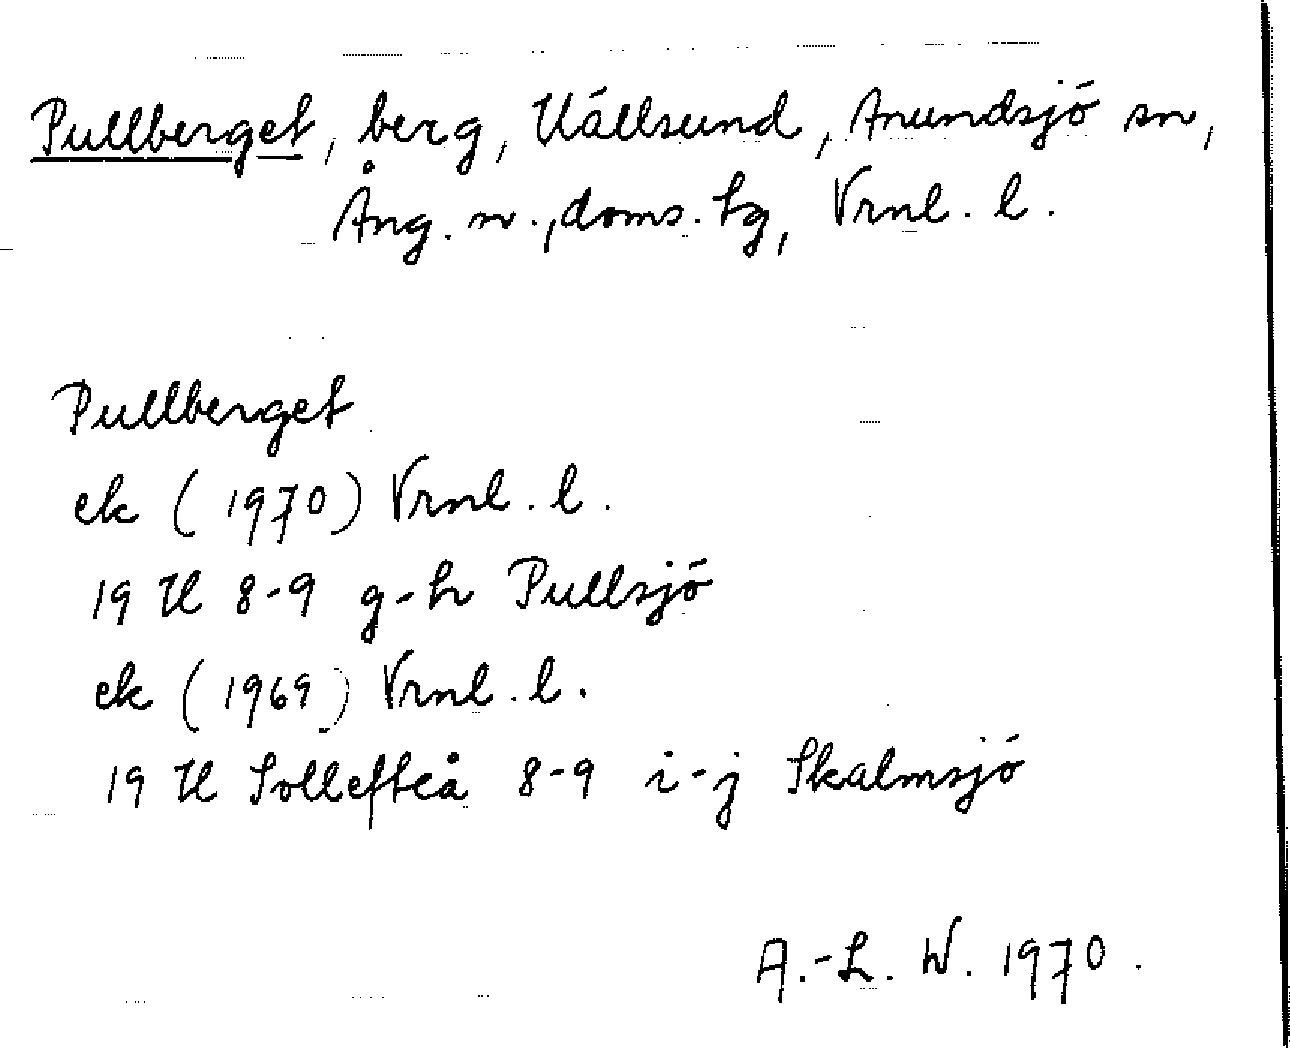 Pullberget, berg, Källsund, Anundsjö sn,
Ång. n., doms. hg, Vrnl. l.
Pullberget
ek (1970) Vrnl. l.
19 H 8-9 g-h Pullsjö
ek (1969) Vrnl. l.
19 H Sollefteå 8-9 i-j Skalmsjö
A.-L. W. 1970.